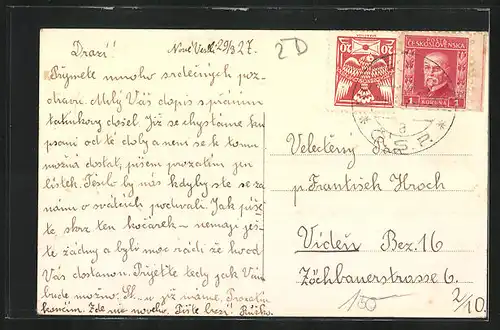 Drazí!
Nové Vesl. 29/3 27.
Přijměte mnoho srdečných poz-
dravů. Milý Váš dopis správným
tatínkovy došel. Již se chystáme
psaní od té doby a nem se k tomu
možná dostat, píšem prozatím jen
lístek. Těšilo by nás kdyby ste se za
námi o svátcích podívali. Jak píše
te, skrz ten kočárek – nemají ješ-
tě žádny a byli moc rádi že
Vás dostanou. Přijeďte tedy jak Vám
bude možno. již máme.
končím. Zde nic nového. Pište brzi!
2D
POŠTA
ČESKOSLOVENSKÁ
1 KORUNA 1
20 20
Č.S.R.
a
Velectěný Pan
p. František Hroch
Vídeň Bez. 16
Zöchbauerstrasse 6.
150
2/10